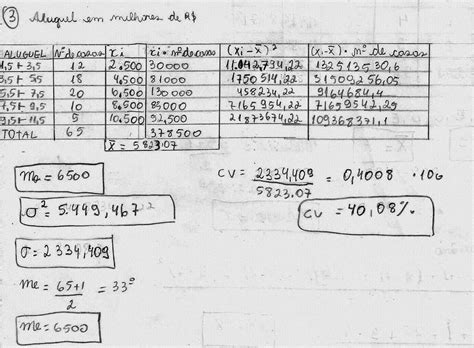 ③ Aluguel em milhares de R$
ALUGUEL Nº de casas xi xi • nº de casas (xi - x̄)² (xi - x̄) • nº de casas
1,5 ⊢ 3,5 12 2.500 30000 11.042,794,22 132513530,6
3,5 ⊢ 5,5 18 4.500 81000 1750514,22 31509256,05
5,5 ⊢ 7,5 20 6.500 130000 458234,22 9164684,4
7,5 ⊢ 9,5 10 8.500 85000 7165954,22 71659542,29
9,5 ⊢ 11,5 5 10.500 52,500 21873674,22 109368371,1
TOTAL 65 378500
x̄ = 5823.07
Mo = 6500
CV = 2334,409 = 0,4008 • 100
5823.07
σ² = 5.449,467
CV = 40,08%
σ = 2334,409
Me = 65+1 = 33º
2
Me = 6500